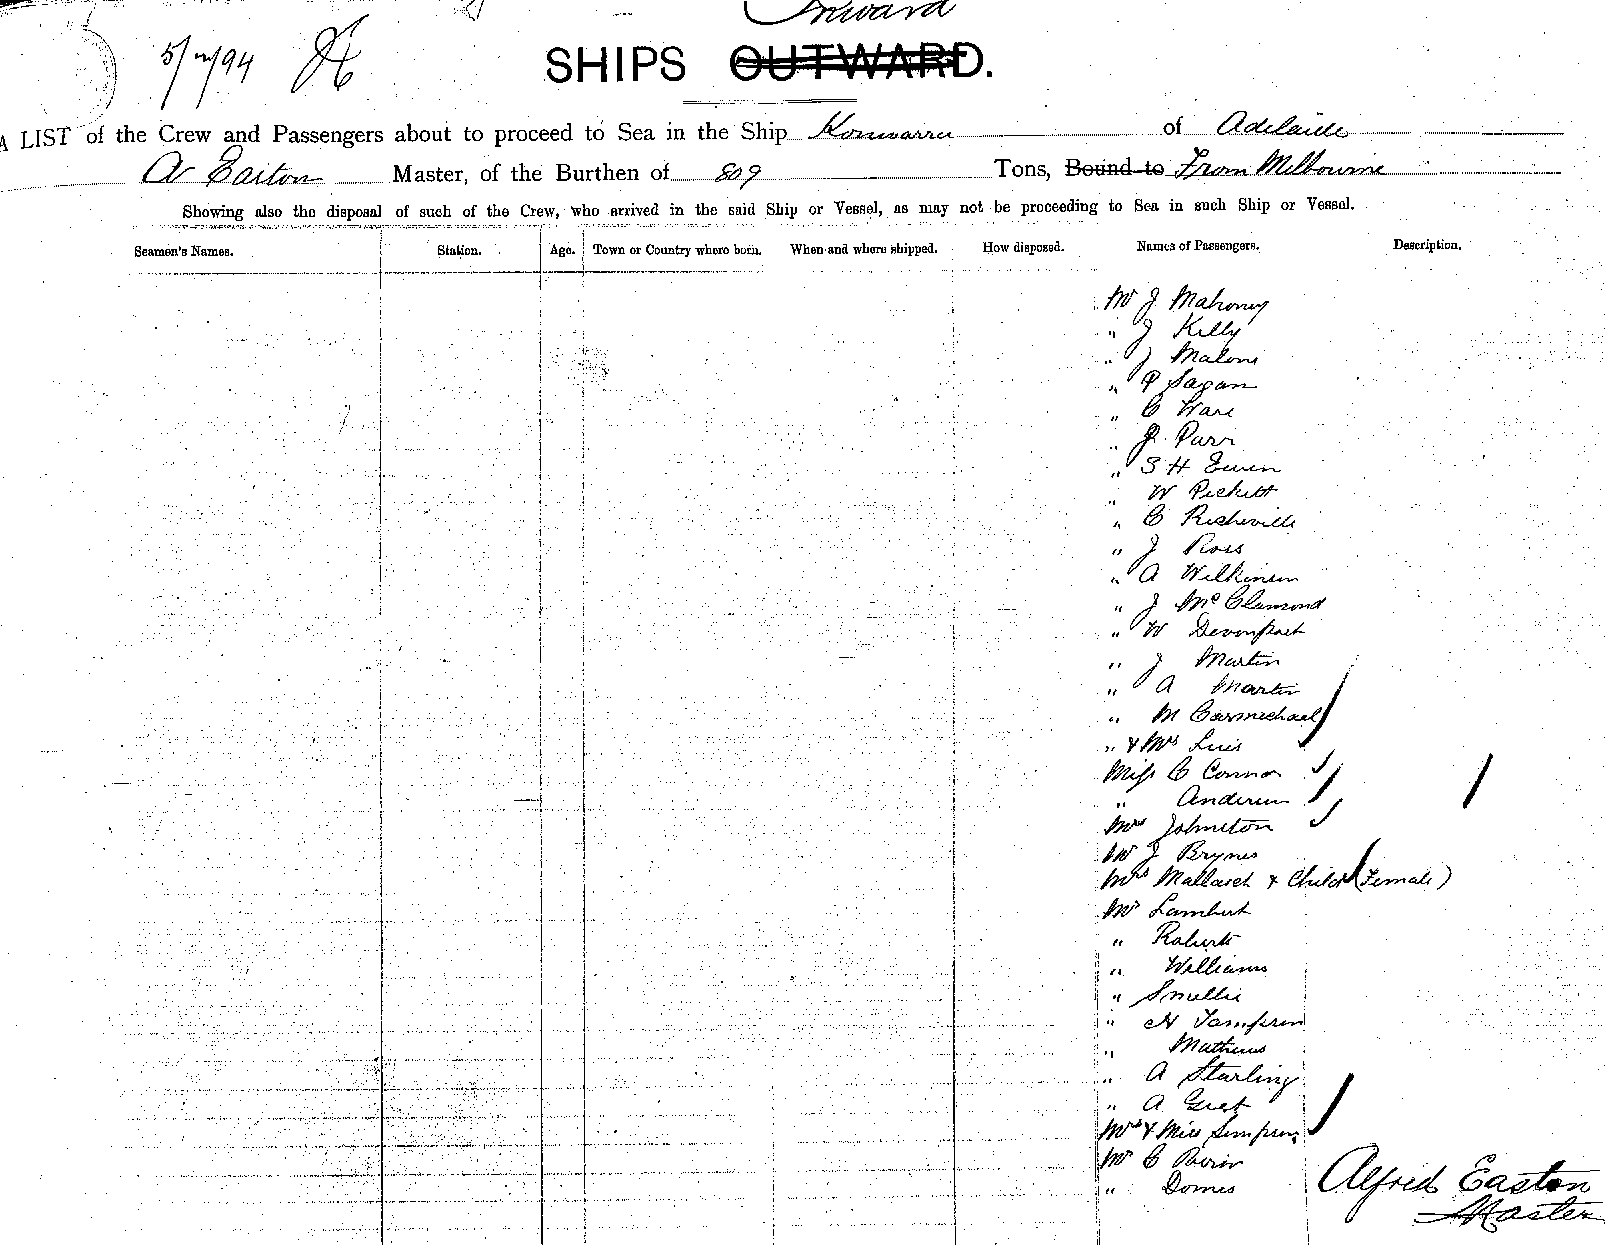 Inward
5/ /94
SHIPS OUTWARD.
A LIST of the Crew and Passengers about to proceed to Sea in the Ship Konoowarra of Adelaide
A Easton Master, of the Burthen of 809 Tons, Bound to From Melbourne
Showing also the disposal of such of the Crew, who arrived in the said Ship or Vessel, as may not be proceeding to Sea in such Ship or Vessel.
Seamen's Names. Station. Age. Town or Country where born. When and where shipped. How disposed. Names of Passengers. Description.
Mr J Mahoney
" J Kelly
" J Malone
" P Sagan
" C Ware
" J Parr
" S H Ewen
" W Pickett
" C Risheville
" J Ross
" A Wilkinson
" J McClamond
" W Devonport
" J Martin
" A Martin
" M Carmichael
" & Mrs Luis
Miss C Connor
" Anderson
Mrs Johnston
Mr J Brynes
Mrs Mallarch & Child (Female)
Mr Lambert
" Roberts
" Williams
" Smellie
" H Tampson
" Mathews
" A Starling
" A
Mrs & Miss Simpson
Mr C
" Domes
Alfred Easton
Master